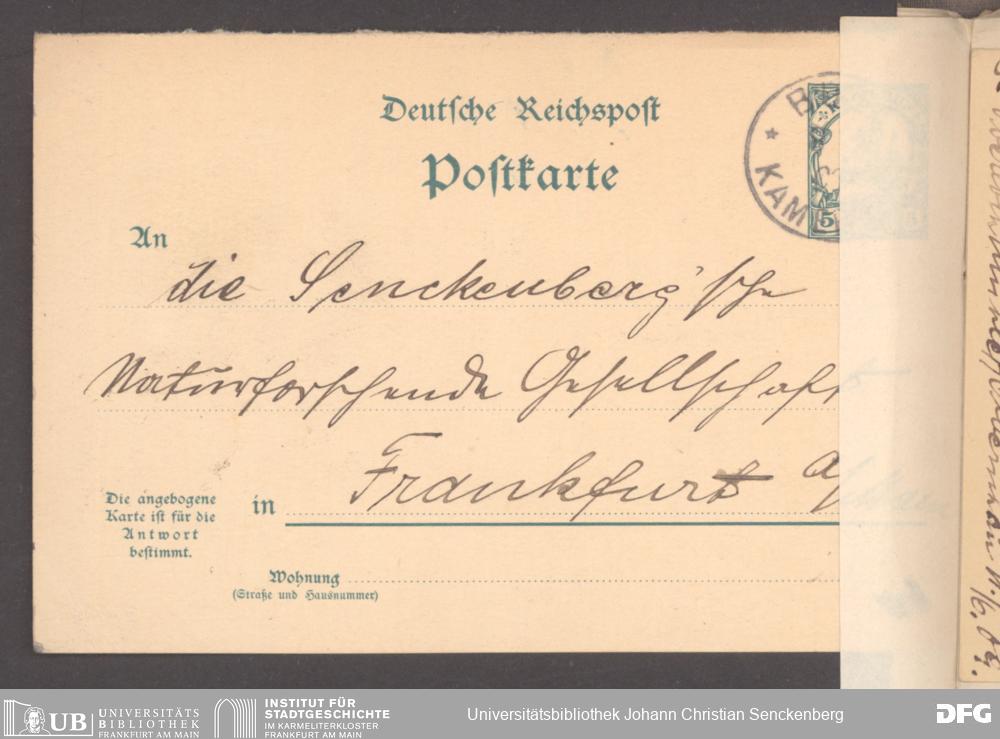 Deutsche Reichspost
Postkarte
KAM
5
An
die Senckenberg'sche
Naturforschende Gesellschaft
in Frankfurt a/
Die angebogene
Karte ist für die
Antwort
bestimmt.
Wohnung
(Straße und Hausnummer)
UB UNIVERSITÄTS
BIBLIOTHEK
FRANKFURT AM MAIN
INSTITUT FÜR
STADTGESCHICHTE
IM KARMELITERKLOSTER
FRANKFURT AM MAIN
Universitätsbibliothek Johann Christian Senckenberg
DFG